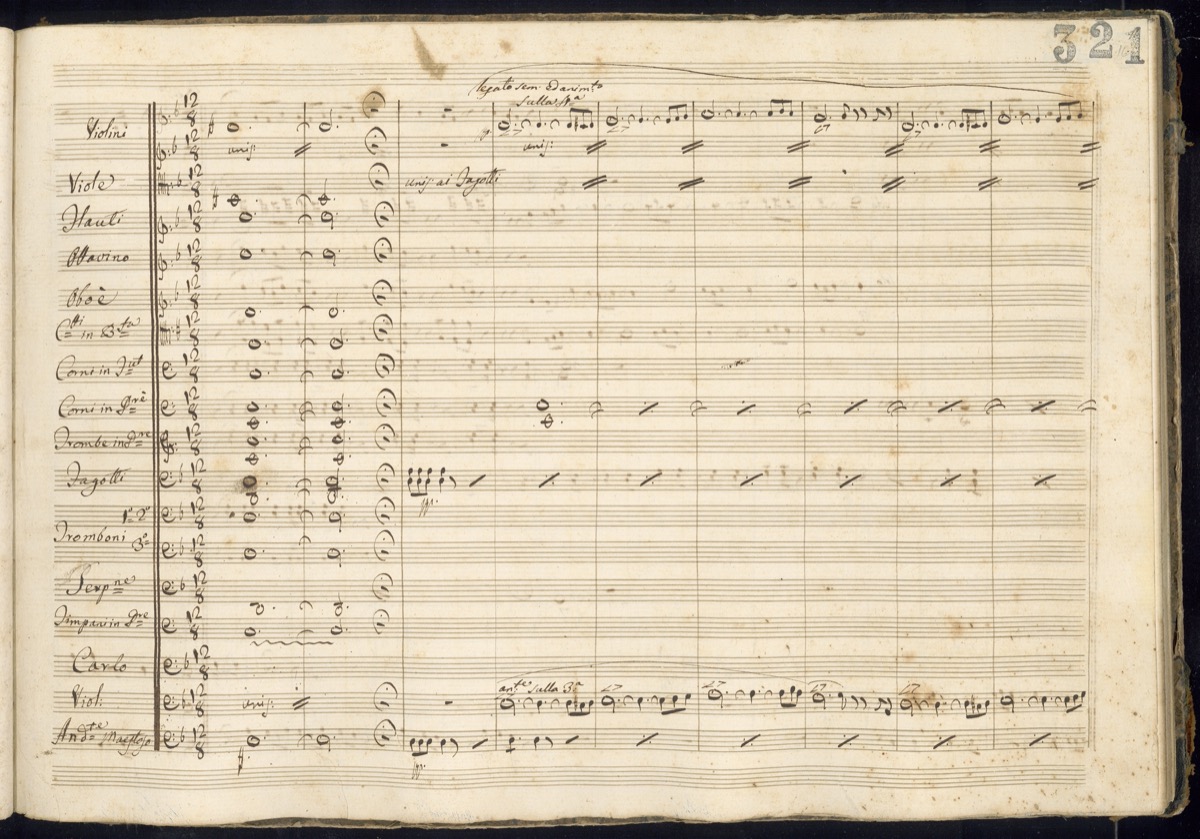 321
legato sem. ed anim.to
sulla 4a
Violini
unis:
unis:
Viole
unis: ai Fagotti
Flauti
Ottavino
Oboè
C.tti in B.fa
Corni in F.ut
Corni in D.rè
Trombe in D.re
Fagotti
pp.
1° 2°
Tromboni
3°
Serp.ne
Timpani in D.re
Carlo
sulla 3a
Viol:
unis:
And.te Maestoso
pp.